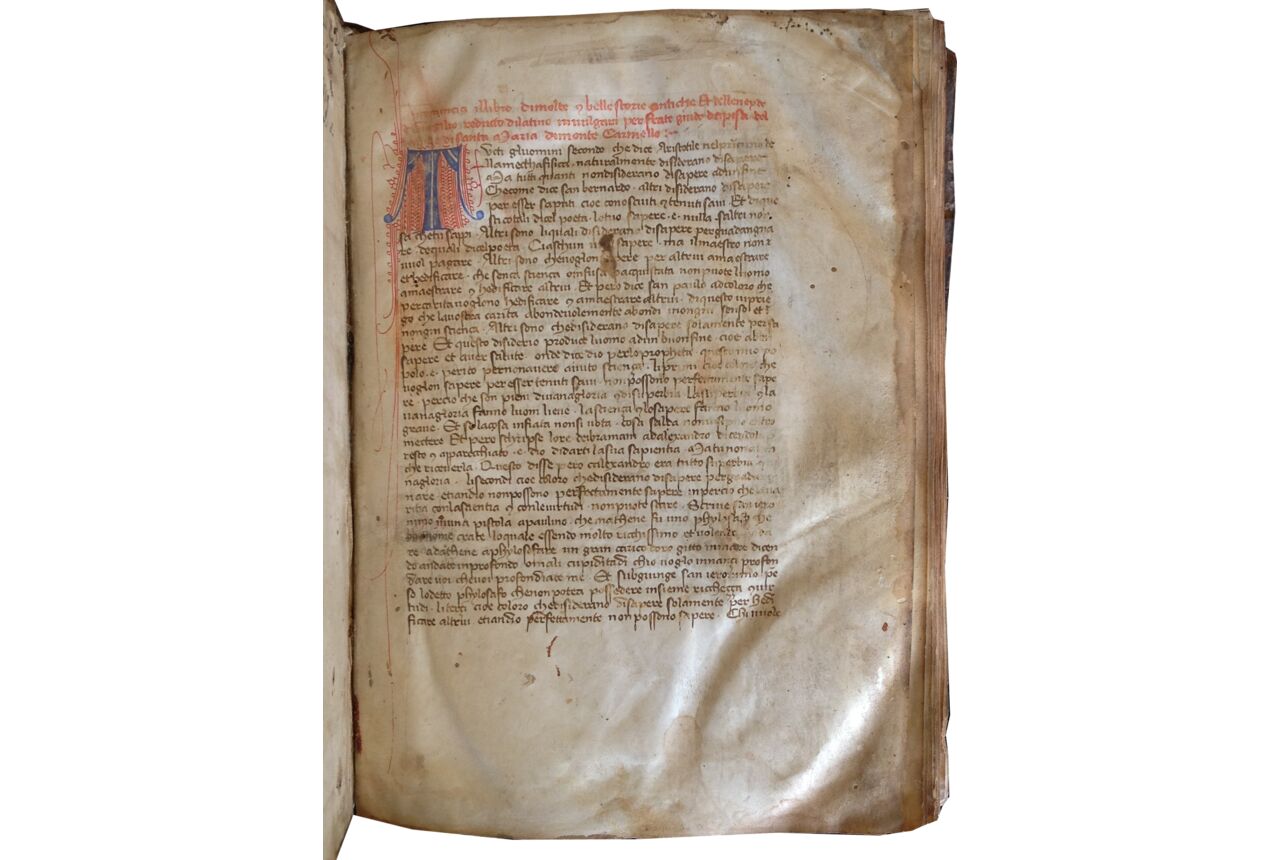 illibro dimolte ⁊ belle storie antiche Et delleneyde
reducto dilatino in vulgari per frate guido da pisa del
disanta Maria demonte Carmello
Tucti gluomini secondo che dice Aristotile nel
naturalmente disiderano disapere
Ma tutti quanti nondisiderano disapere
Che come dice san bernardo · altri disiderano disapere
per esser saputi cioe conosciuti ⁊ tenuti savi · Et di que
sti cotali dice'l poeta · lo tuo sapere · e · nulla saltri non
sa chetu sappi · Altri sono liquali disiderano disapere per guadangna
re · de quali dice'l poeta · Ciaschun sapere ma ilmaestro non
vuol pagare · Altri sono che voglon sapere per altrui amaestrare
et hedificare · che sença sciença o infusa o acquistata non puote luomo
amaestrare ⁊ hedificare altrui · Et pero dice san paulo ad coloro che
per carita voglono hedificare ⁊ amaestrare altrui · di questo vi prie
go che la vostra carita abondevolemente abondi in ongni senso et
in ongni sciença · Altri sono che disiderano disapere solamente per sa
pere Et questo disiderio produce luomo ad un buon fine · cioe
sapere et aver salute · onde dice dio per lo propheta · questo mio po
polo · e · perito per non avere avuto sciença · li primi cioe coloro che
voglon sapere per esser tenuti savi · non possono perfectamente sape
re · percio che son pieni di vanagloria ⁊ di superbia La superbia ⁊ la
vanagloria fanno luom lieve · la sciença ⁊ lo sapere fanno luomo
grave · Et se la cosa infiata non si vota · cosa salda non vi puo entro
mectere Et pero scripse lo re deibramani ad alexandro dicendo
presto ⁊ apparecchiato · e · dio didarti la sua sapientia · Ma tu non
che riceverla · Questo disse pero che alexandro era tutto superbia ⁊ va
nagloria · li secondi cioe coloro che disiderano disapere per guada
nare · etiandio non possono perfectamente sapere inpercio che l'ava
ritia con la scientia ⁊ con le virtudi · non puote stare · Scrive san iero
nimo in una pistola a paulino · che mathene fu uno phylosafo che
crate lo quale essendo molto ricchissimo et volendo
re · ad athene a phylosofare un gran carico doro gitto in mare dicen
do andate in profondo o mali cupiditadi chio voglo innanci profon
dare voi che voi profondiate me · Et subgiunge san ieronimo pe
so lo detto phylosafo che non potea possedere insieme ricchecça ⁊ vir
tudi · li terci cioe coloro che disiderano disapere solamente per hedi
ficare altrui · etiandio perfettamente non possono sapere · Chi vuole